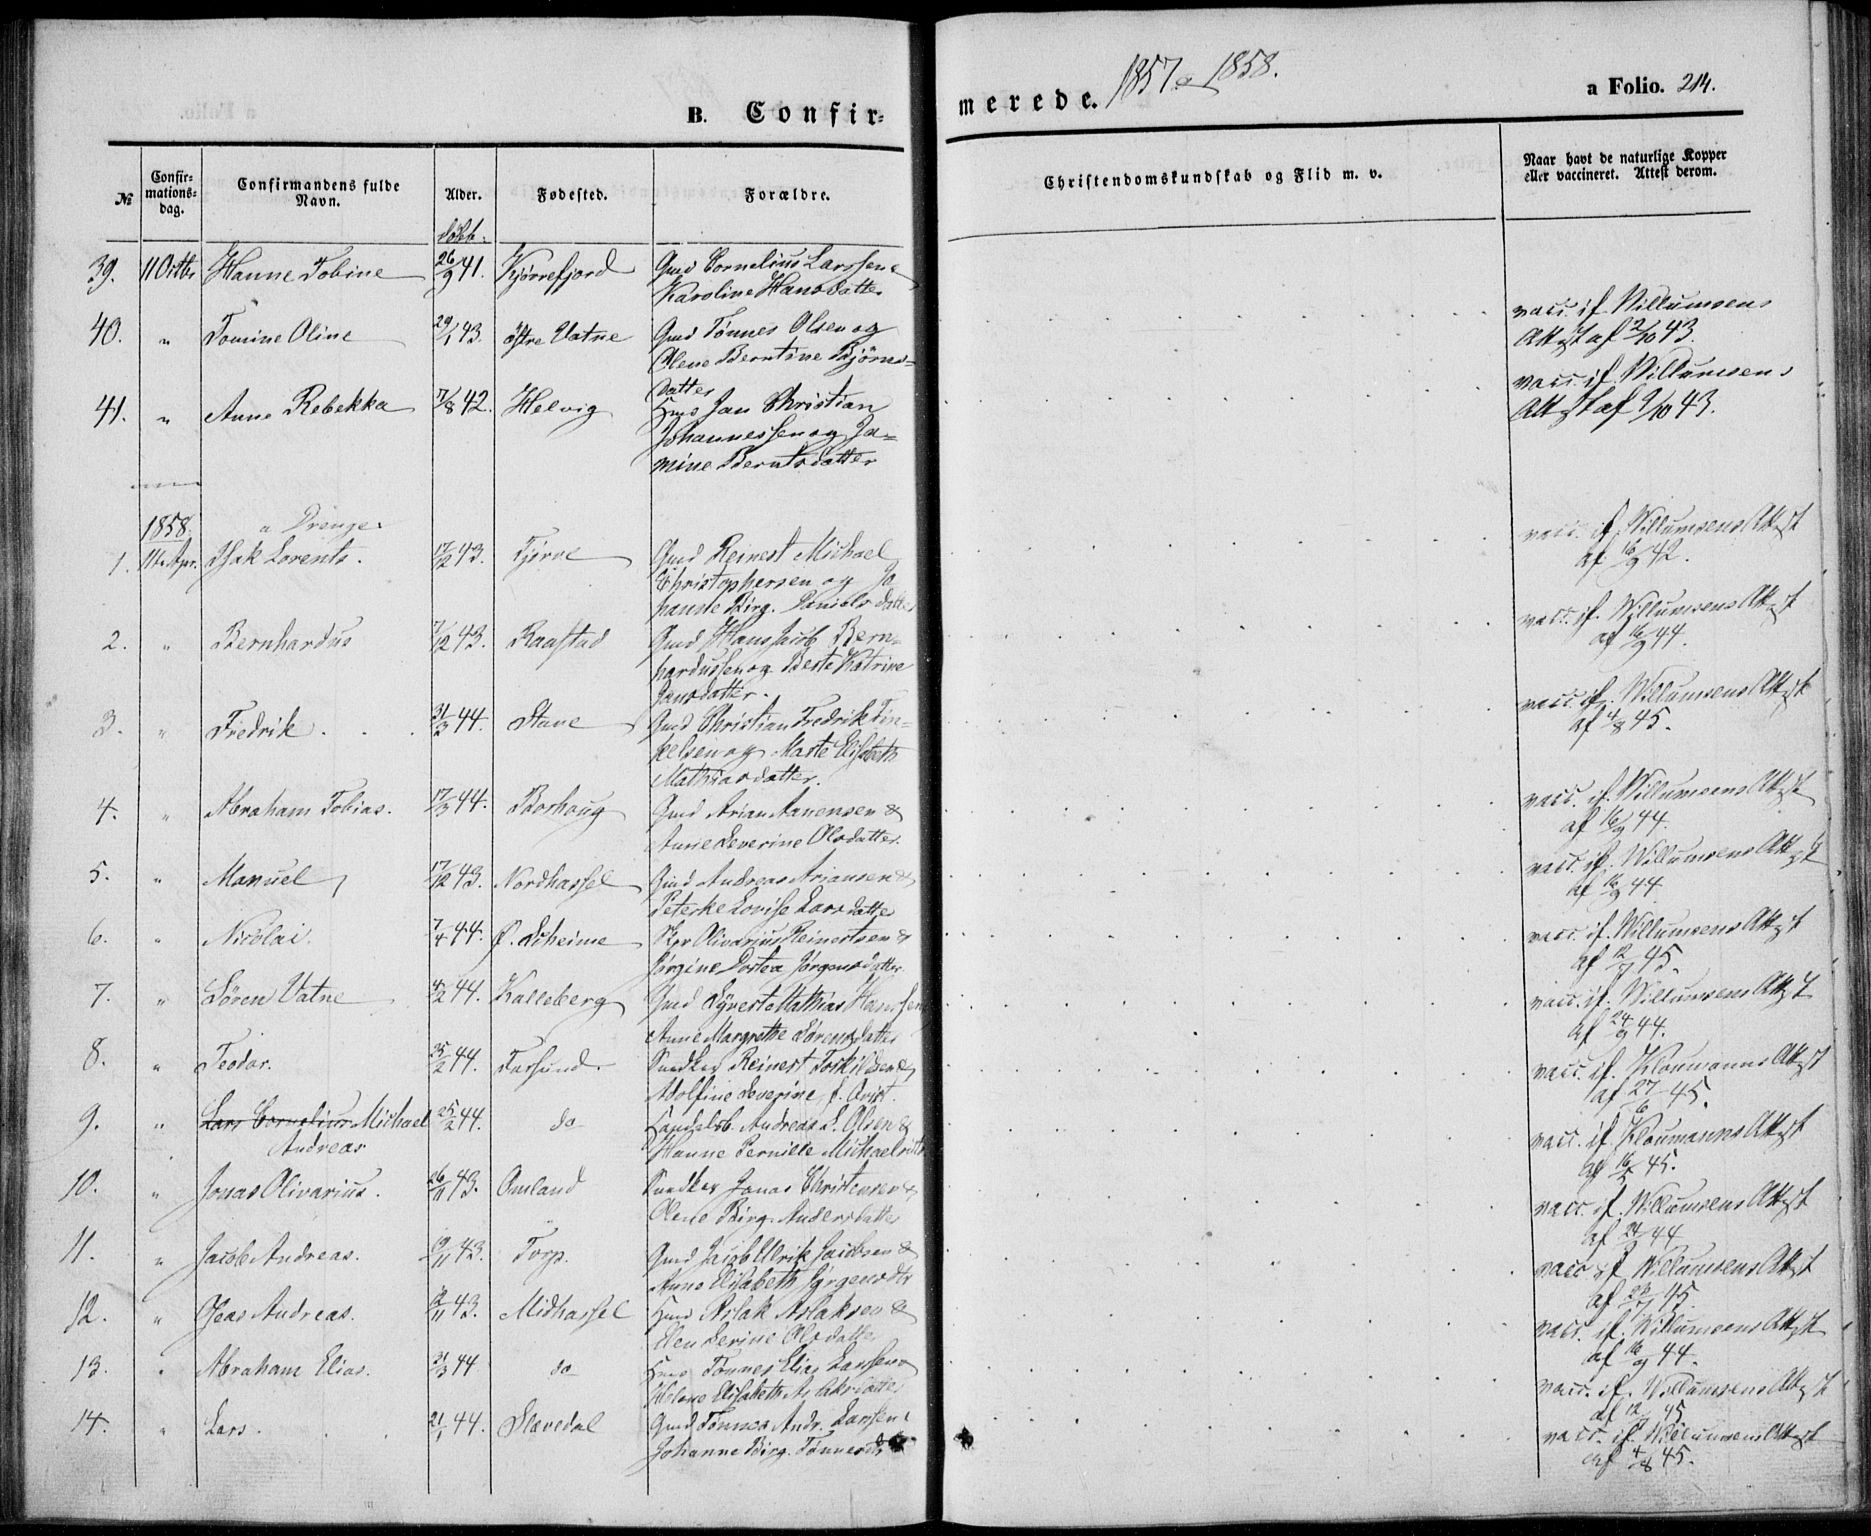 B. Confir-
merede. 1857 & 1858.
a Folio. 214.
№
Confir-
mations-
dag.
Confirmandens fulde
Navn.
Alder.
Fødested.
Forældre.
Christendomskundskab og Flid m. v.
Naar havt de naturlige Kopper
eller vaccineret. Attest derom.
døbt.
39. 11 Octbr Hanne Tobine 26/9 41. Kjørrefjord Gmd Cornelius Larssen &
Karoline Hansdatter
40. " Tomine Oline 29/1 43. østre Vatne Gmd Tønnes Olsen og
Olene Berntine Bjørns-
datter
vacc. if. Villumsens
Attest af 2/10 43.
41. " Anne Rebekka 7/8 42. Helvig Hmd Jan Christian
Johannessen og Ja-
mine Berntsdatter
vacc. if. Villumsens
Attest af 9/10 43.
1858. a Drenge.
1. 11te Apr. Isak Lorents. 17/12 43. Tjørve Gmd Reinert Michael
Christophersen og Jo
hanne Birg. Danielsdatter
vacc. if. Willumsens Attest
af 16/9 42.
2. " Bernhardus 7/12 43. Raastad Gmd Hans Jacob Bern-
hardussen og Berte Katrine
Jansdatter.
vacc. if. Willumsens Attest
af 16/9 44.
3. " Fredrik 31/3 44. Stave Gmd Christian Fredrik Fin-
kelsen og Marte Elisabeth
Mathiasdatter.
vacc. if. Willumsens Attest
af 4/8 45.
4. " Abraham Tobias. 17/3 44. Borhaug Gmd Arian Aanensen &
Anne Severine Olsdatter.
vacc. if. Willumsens Attest
af 16/9 44.
5. " Manuel 17/12 43. Nordhassel Gmd Andreas Ariansen &
Peterke Lovise Larsdatter
vacc. if. Willumsens Attest
af 16/9 44.
6. " Nicolai. 7/4 44. Ø. Lisheime Olivarius Reinertsen &
Jørgine Dortea Jørgensdatter
vacc. if. Willumsens Attest
af 45.
7. " Søren Vatne 4/2 44. Kalleberg Gmd Syvert Mathias Hanssen
Anne Margrethe Sørensdatter
vacc. if. Willumsens Attest
af 24/9 44.
8. " Teodor. 25/2 44. Farsund Snedker Reinert Torkildsen &
Adolfine Severine f. Qvist.
vacc. if. Kloumanns Attest
af 27/6 45.
9. " Lars Cornelius Michael 25/2 44. do Handelsb. Andreas L. Olsen &
Andreas Hanne Pernille Michaelsdtr
vacc. if. Kloumanns Attest
af 45.
10. " Jonas Olivarius. 26/11 43. Omland Snedker Jonas Christensen &
Olene Birg. Andersdatter
vacc. if. Willumsens Attest
af 24/9 44
11. " Jacob Andreas. 19/11 43. Torp. Gmd Jacob Ulrik Jacobsen &
Anne Elisabeth Jørgensdtr
vacc. if. Willumsens Attest
af 45.
12. " Andreas. 43. Midhassel Hmd Aslak Aslaksen &
Elen Serine Olsdatter
vacc. if. Willumsens Attest
af 16/9 44.
13. " Abraham Elias. 31/3 44 do Hmd Tønnes Elias Larssen &
Helene Elisabeth Aslaksdatter
vacc. if. Willumsens Attest
af 45
14. " Lars. 21/1 44. Slevedal Gmd Tønnes Andr. Larssen &
Johanne Birg. Tønnesdtr
vacc. if. Willumsens Attest
af 4/8 45.